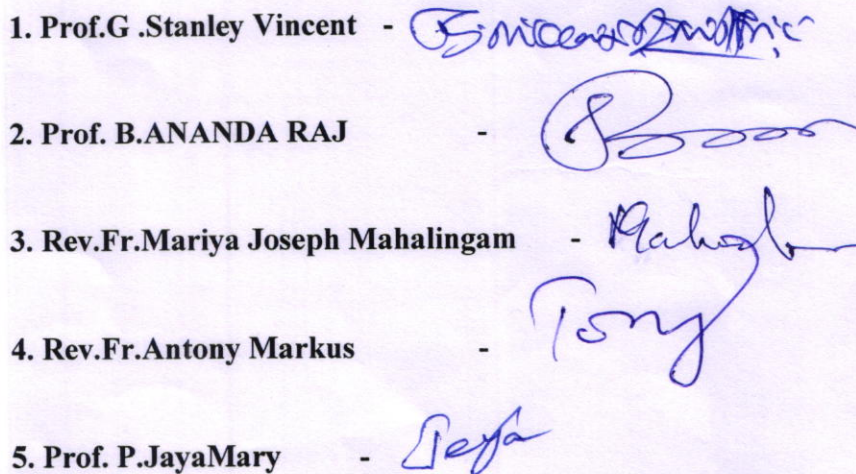 1. Prof.G .Stanley Vincent -
2. Prof. B.ANANDA RAJ -
3. Rev.Fr.Mariya Joseph Mahalingam -
4. Rev.Fr.Antony Markus - Tony
5. Prof. P.JayaMary - Jeya